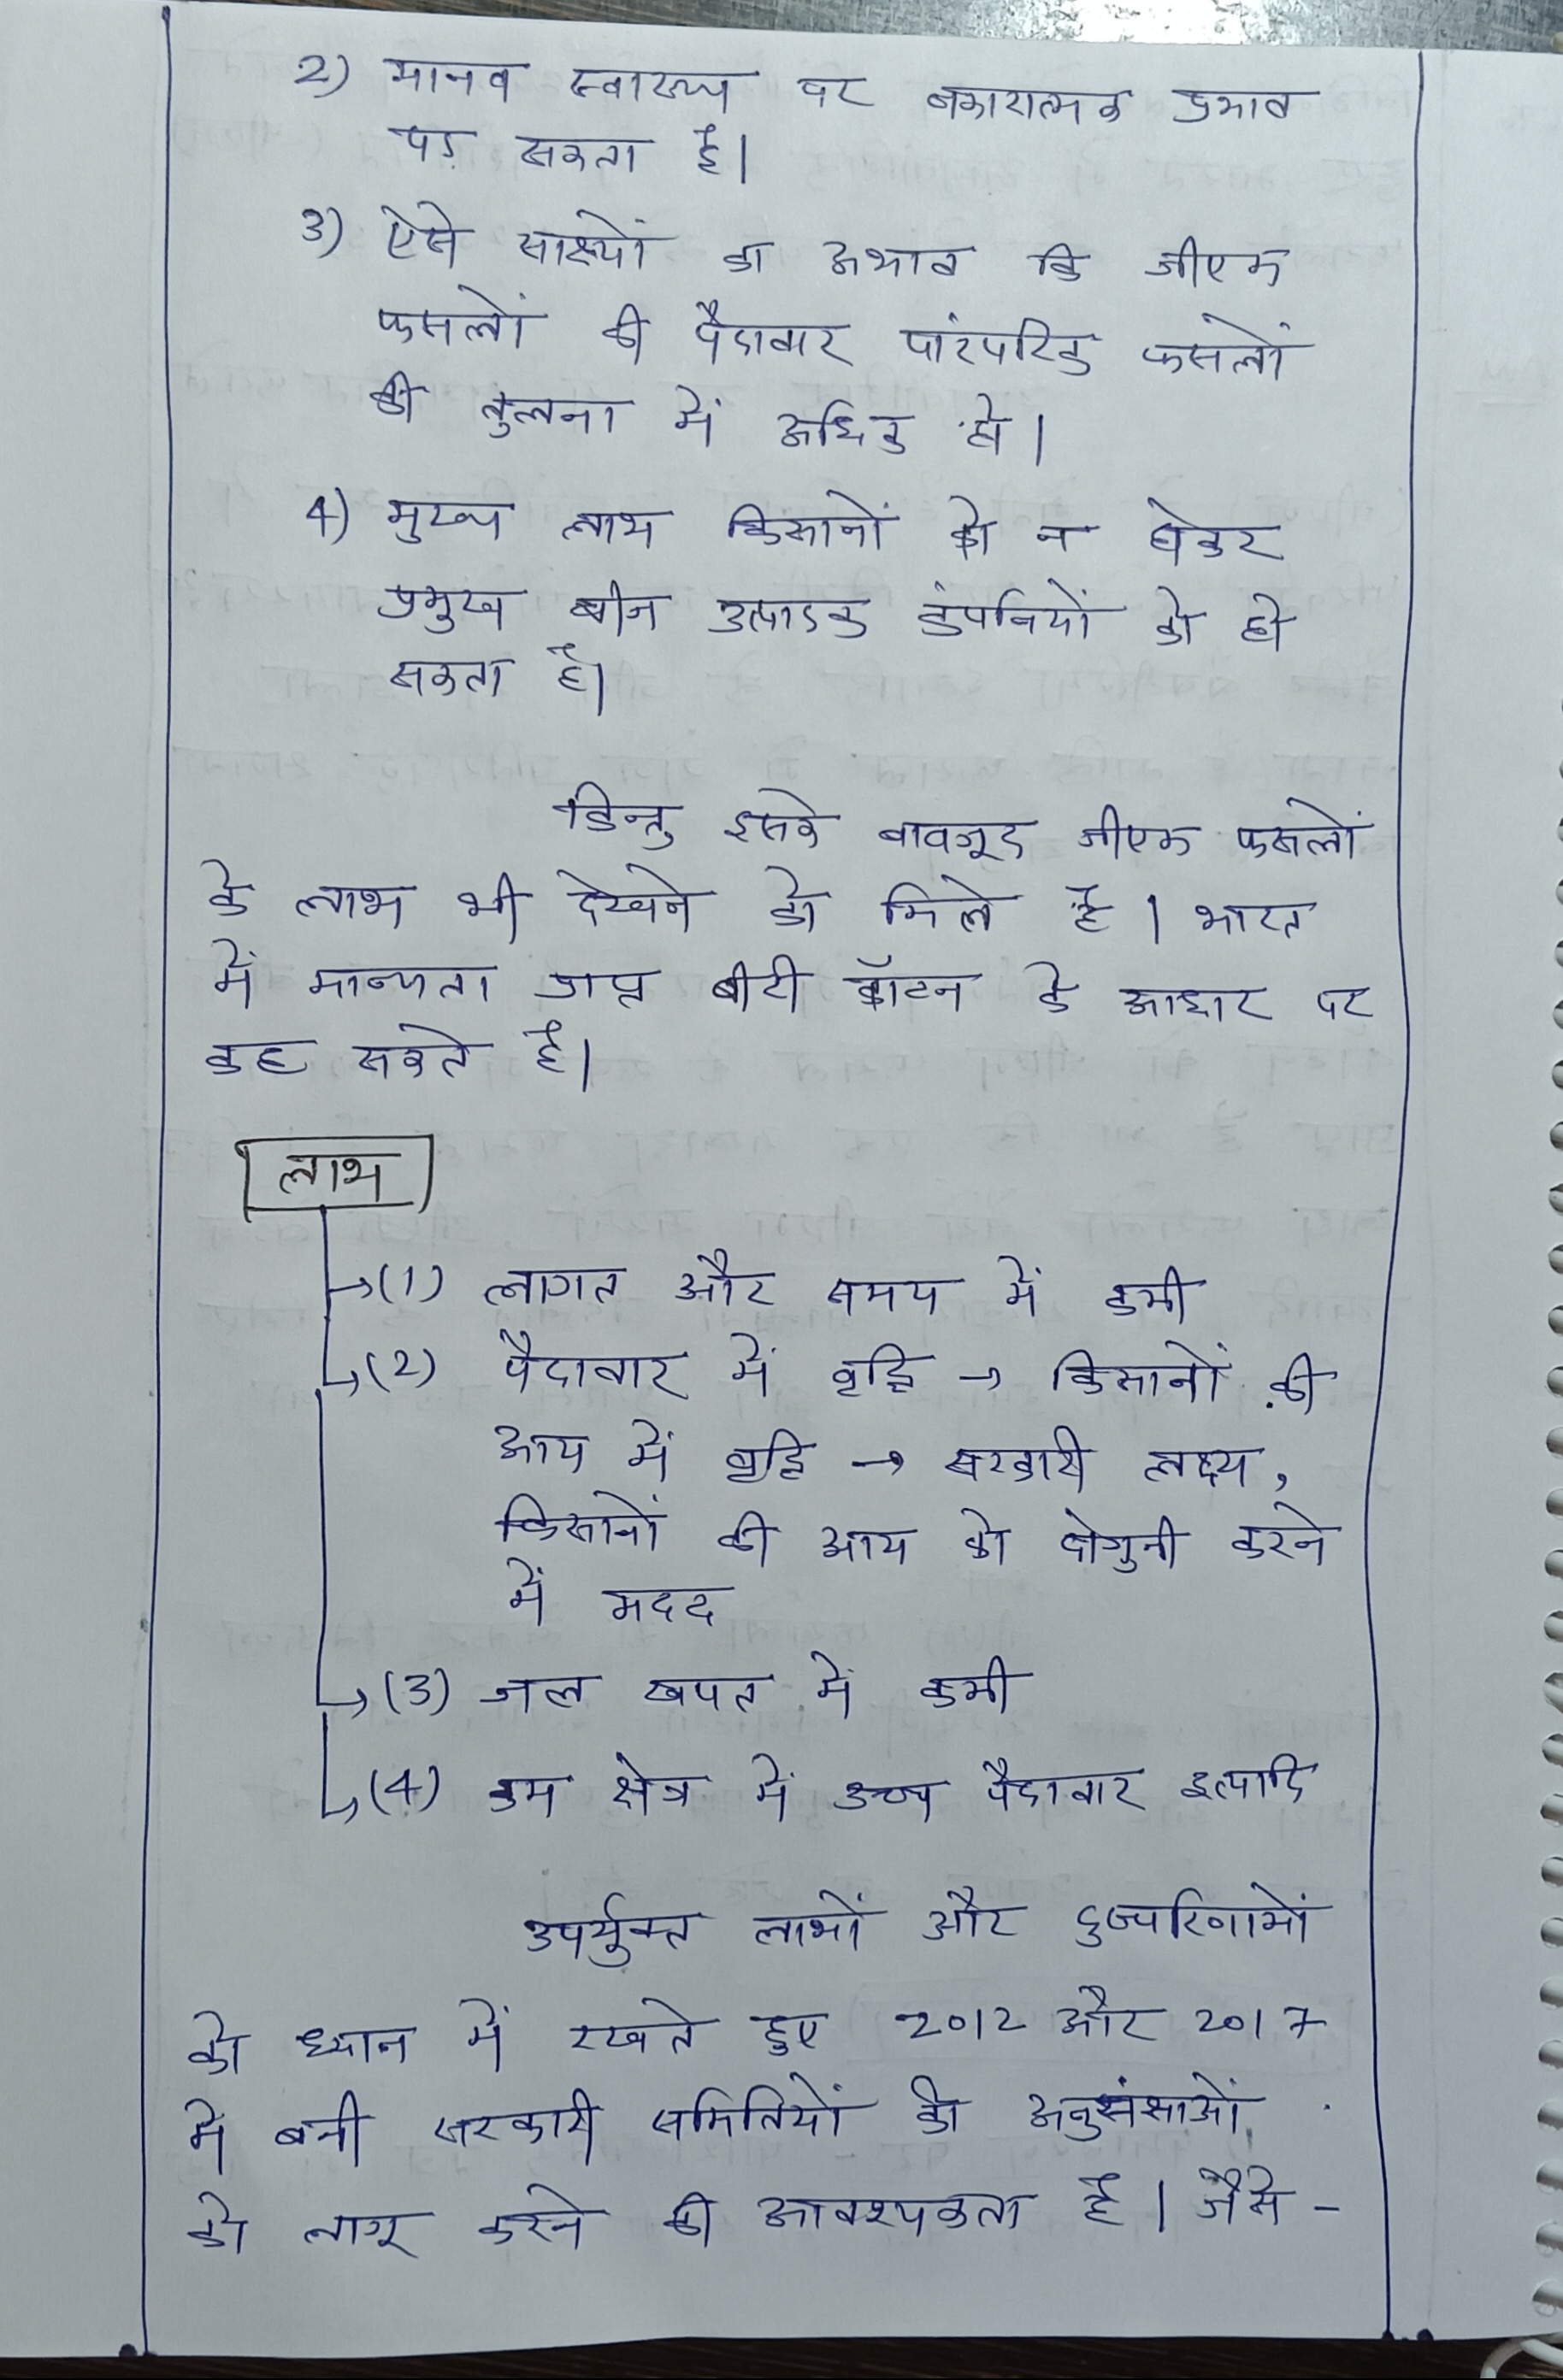 2) मानव स्वास्थ्य पर नकारात्मक प्रभाव
पड़ सकता है।
3) ऐसे साक्ष्यों का अभाव कि जीएम
फसलों की पैदावार पारंपरिक फसलों
की तुलना में अधिक हो।
4) मुख्य लाभ किसानों को न होकर
प्रमुख बीज उत्पादक कंपनियों को हो
सकता है।
किन्तु इसके बावजूद जीएम फसलों
के लाभ भी देखने को मिले हैं। भारत
में मान्यता प्राप्त बीटी कॉटन के आधार पर
कह सकते हैं।
लाभ
→(1) लागत और समय में कमी
→(2) पैदावार में वृद्धि → किसानों की
आय में वृद्धि → सरकारी लक्ष्य,
किसानों की आय को दोगुनी करने
में मदद
→(3) जल खपत में कमी
→(4) कम क्षेत्र में उच्च पैदावार इत्यादि
उपर्युक्त लाभों और दुष्परिणामों
को ध्यान में रखते हुए 2012 और 2017
में बनी सरकारी समितियों की अनुसंसाओं
को लागू करने की आवश्यकता है। जैसे -